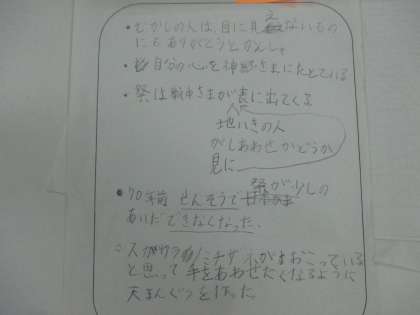 ・むかしの人は、目に見えないもの
にもありがとうとかんしゃ
・自分の心を神様にたとえている
・祭は神さまが表に出てくる
地いきの人
がしあわせかどうか
見に
・70年前 せんそうで 祭が少しの
あいだできなくなった。
スガワラノミチザネがまだおこっている
と思って手をあわせたくなるように
天まんぐうを作った。